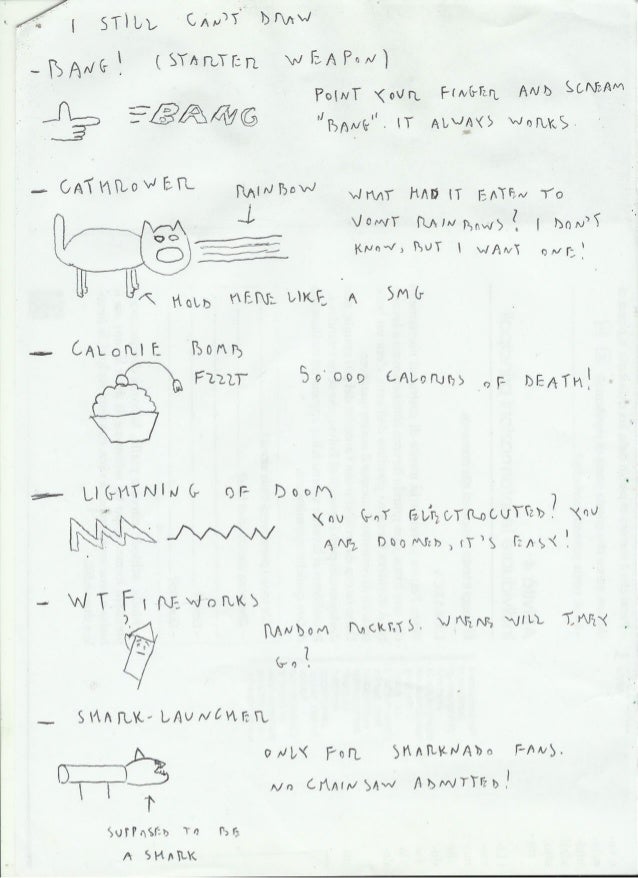 I STILL CAN'T DRAW
- BANG! (STARTER WEAPON)
BANG
POINT YOUR FINGER AND SCREAM
"BANG". IT ALWAYS WORKS.
- CATHROWER
RAINBOW
WHAT HAD IT EATEN TO
VOMIT RAINBOWS? I DON'T
KNOW, BUT I WANT ONE!
HOLD HERE LIKE A SMG
- CALORIE BOMB
FZZZT
50'000 CALORIES OF DEATH!
- LIGHTNING OF DOOM
YOU GOT ELECTROCUTED? YOU
ARE DOOMED, IT'S EASY!
- WTFIREWORKS
?
RANDOM ROCKETS. WHERE WILL THEY
GO?
- SHARK-LAUNCHER
ONLY FOR SHARKNADO FANS.
NO CHAINSAW ADMITTED!
SUPPOSED TO BE
A SHARK